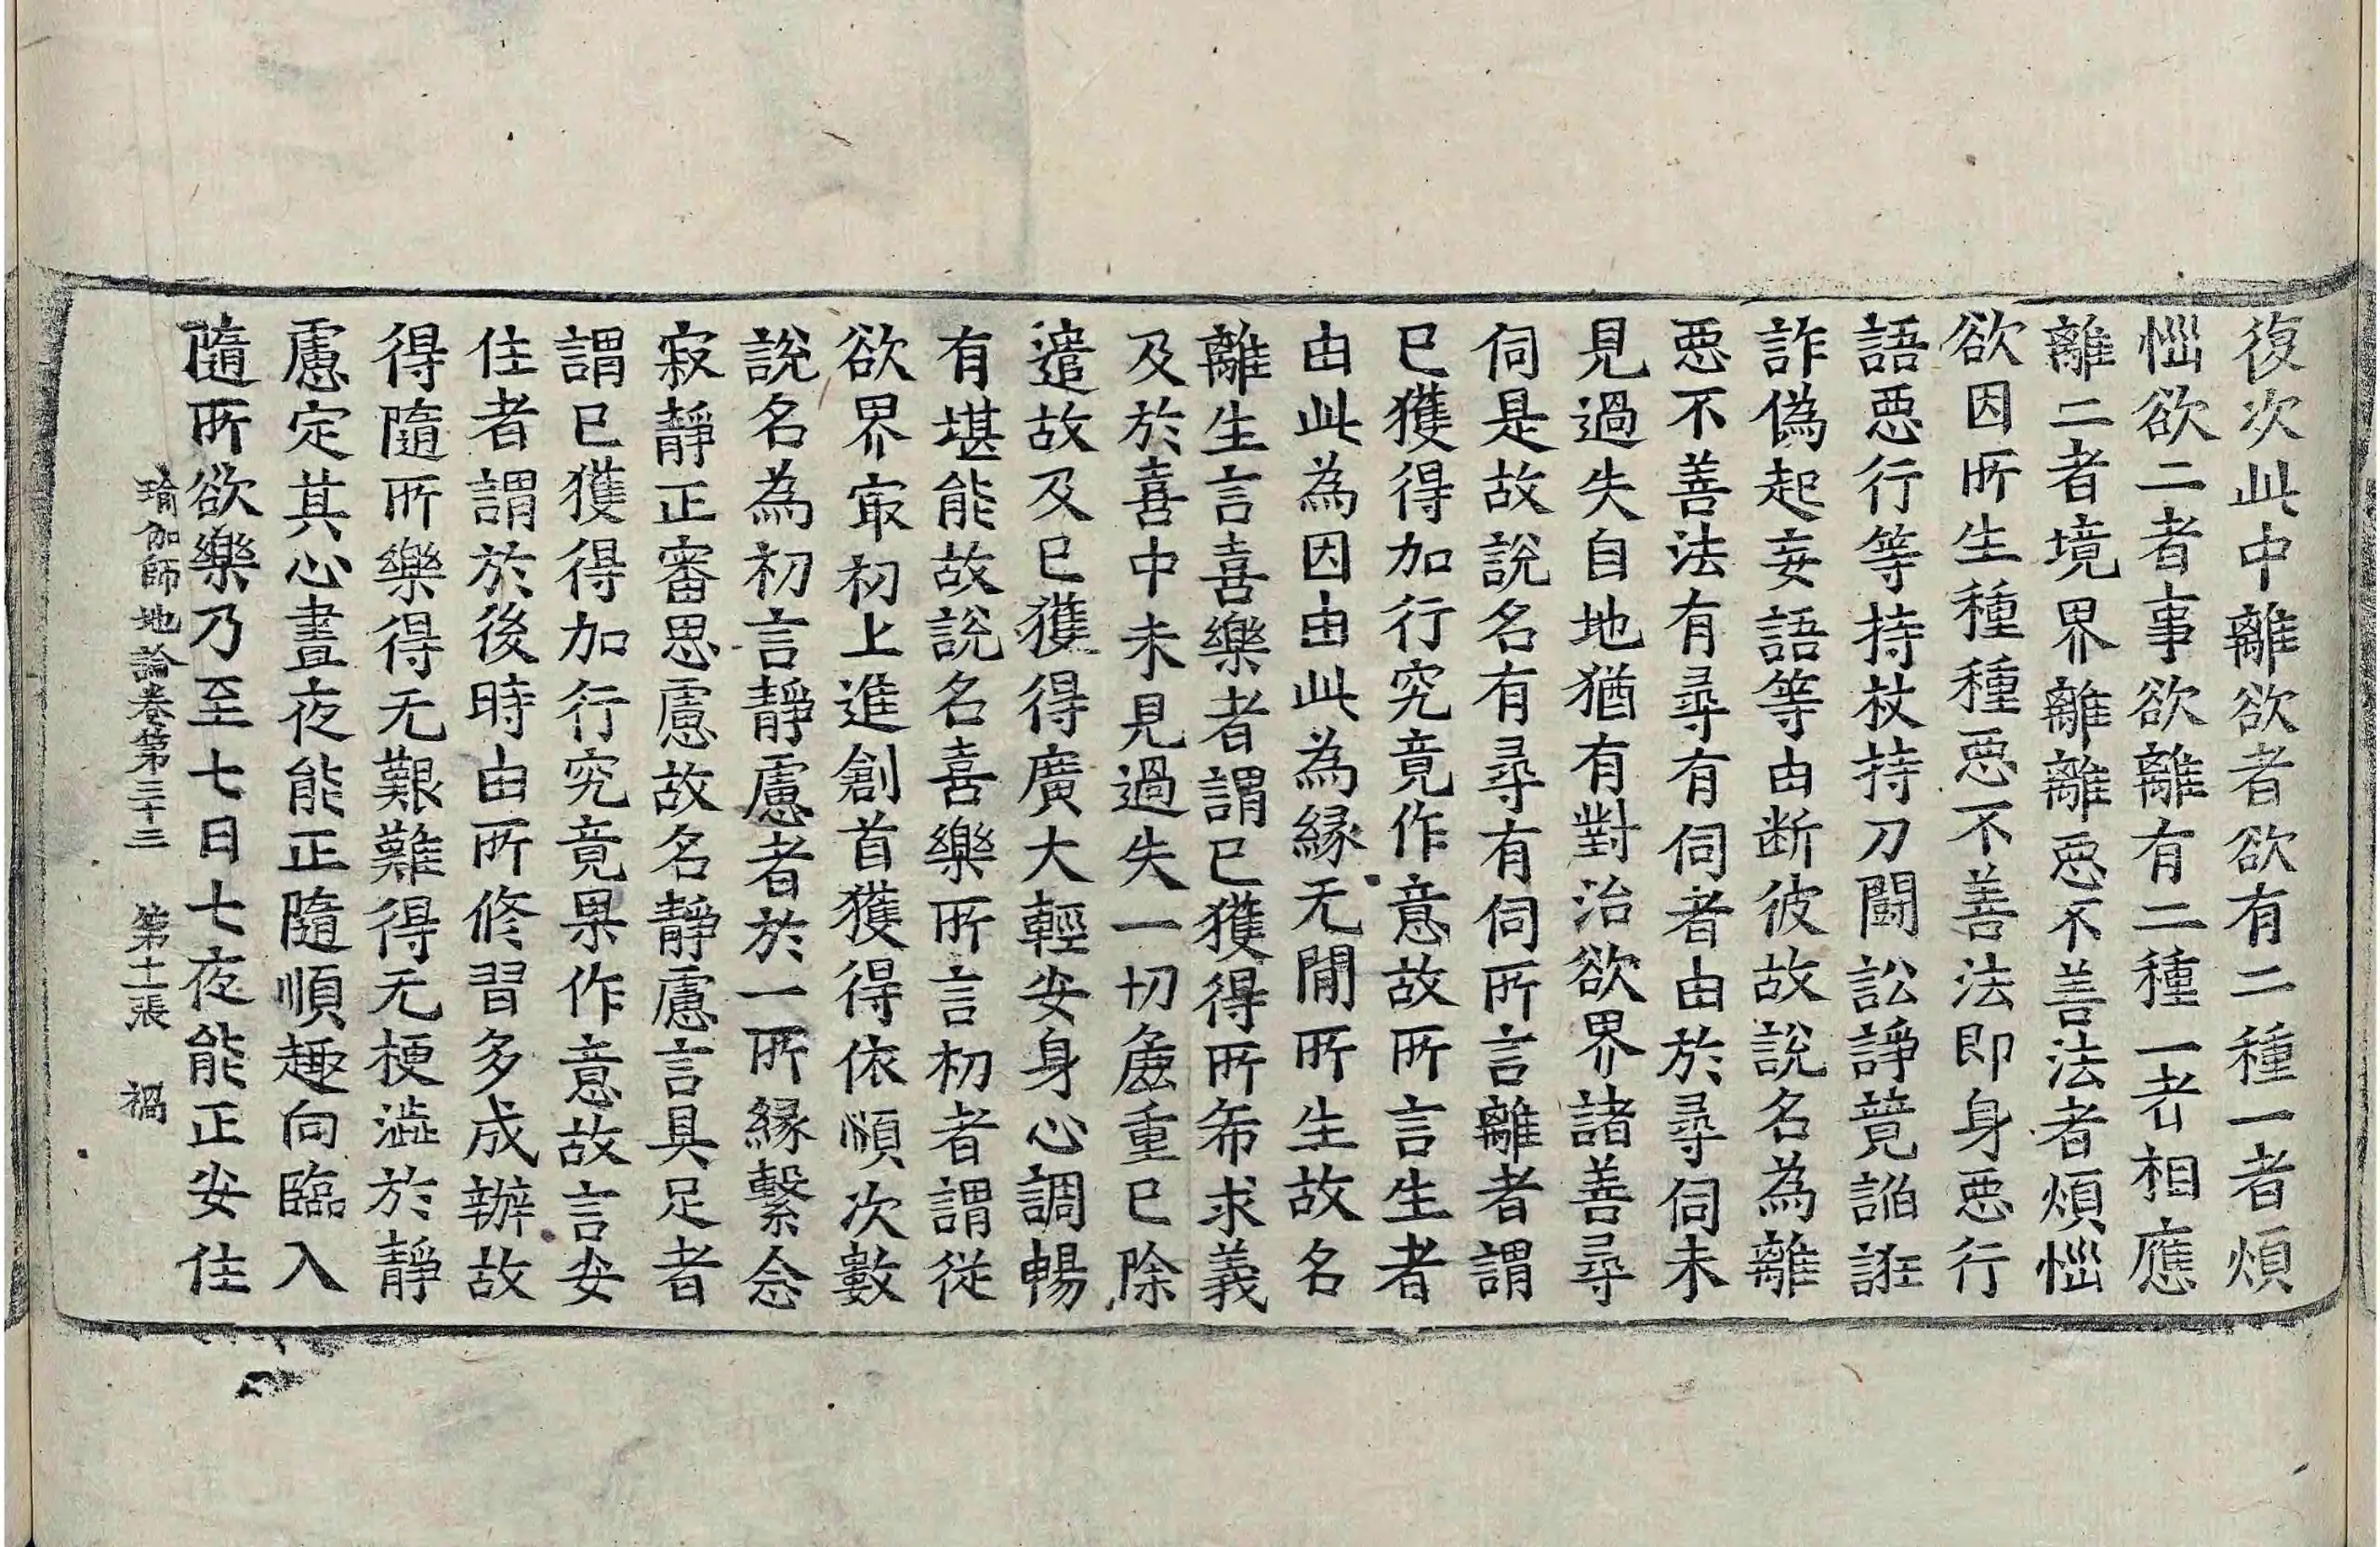 復次此中離欲者欲有二種一者煩
惱欲二者事欲離有二種一者相應
離二者境界離離惡不善法者煩惱
欲因所生種種惡不善法即身惡行
語惡行等持杖持刀鬪訟諍競諂誑
詐偽起妄語等由断彼故說名為離
惡不善法有尋有伺者由於尋伺未
見過失自地猶有對治欲界諸善尋
伺是故說名有尋有伺所言離者謂
已獲得加行究竟作意故所言生者
由此為因由此為緣无間所生故名
離生言喜樂者謂已獲得所希求義
及於喜中未見過失一切麁重已除
遣故及已獲得廣大輕安身心調暢
有堪能故說名喜樂所言初者謂從
欲界㝡初上進創首獲得依順次數
說名為初言靜慮者於一所緣繫念
寂靜正審思慮故名靜慮言具足者
謂已獲得加行究竟果作意故言安
住者謂於後時由所修習多成辦故
得隨所樂得无艱難得无梗澁於靜
慮定其心晝夜能正隨順趣向臨入
隨所欲樂乃至七日七夜能正安住
瑜伽師地論卷第三十三 第十一張 禍